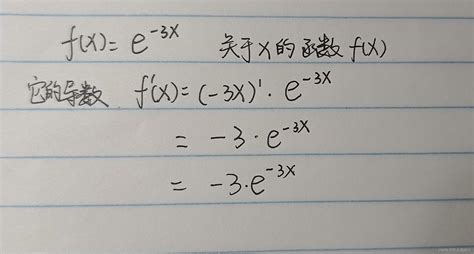 f(x) = e^{-3x} 关于x的函数f(x)
它的导数 f'(x) = (-3x)' · e^{-3x}
= -3 · e^{-3x}
= -3 · e^{-3x}